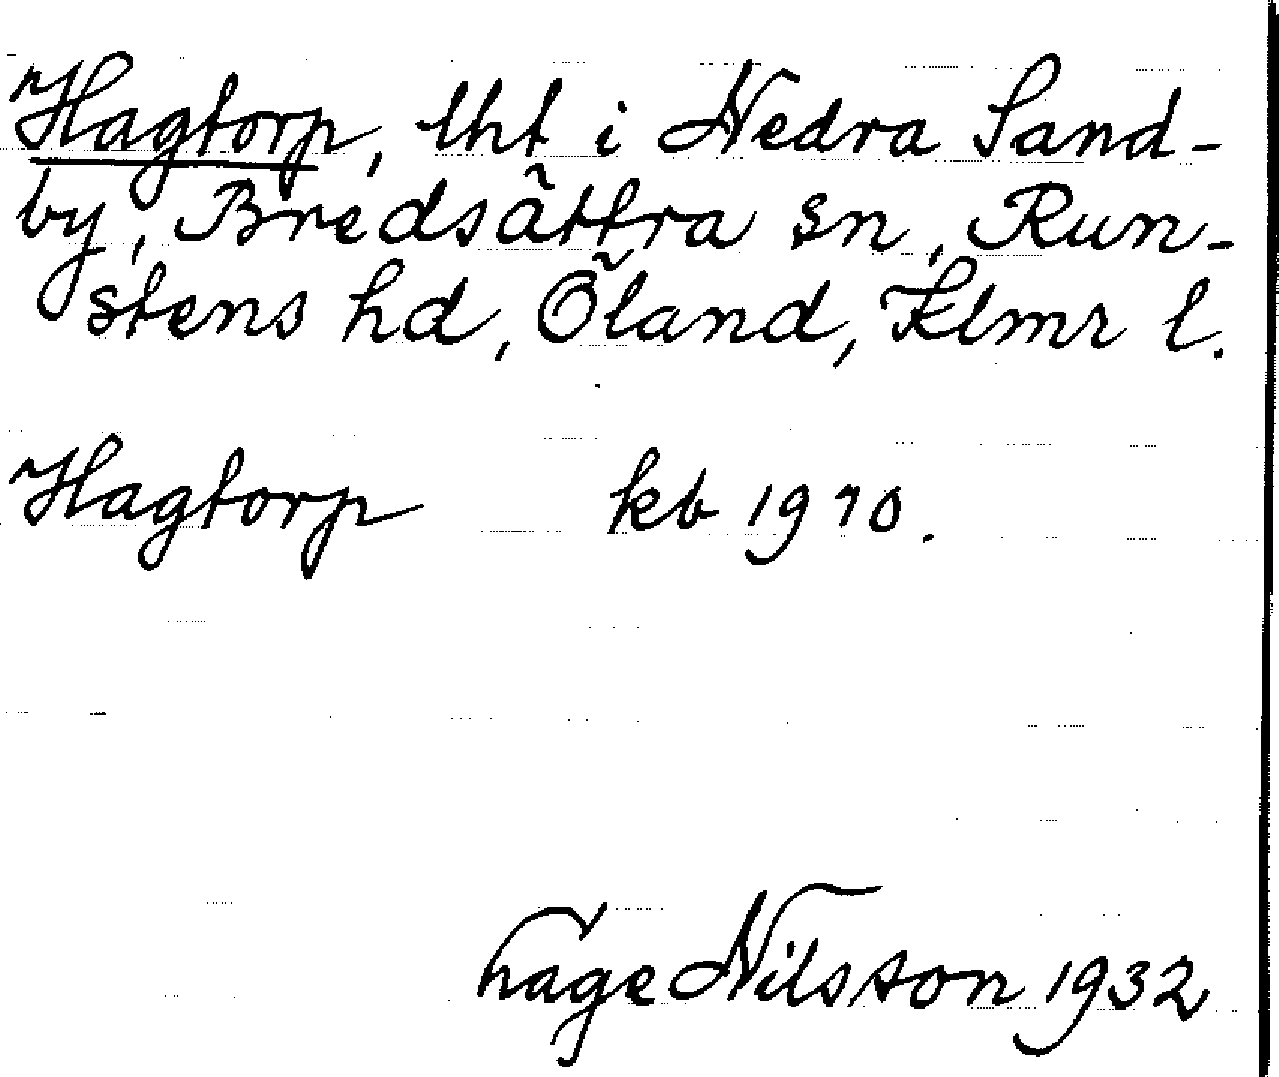 Hagtorp, lht i Nedra Sand-
by, Bredsättra sn, Run-
stens hd, Öland, Klmr l.
Hagtorp kb 1910.
Tage Nilsson 1932